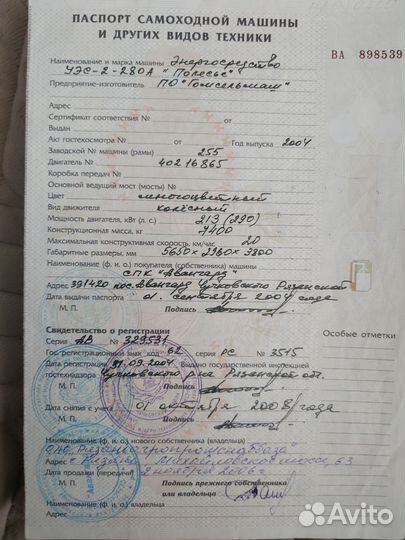 ПАСПОРТ САМОХОДНОЙ МАШИНЫ
И ДРУГИХ ВИДОВ ТЕХНИКИ
ВА 898539
Наименование и марка машины Энергосредство
УЭС-2-280А "Полесье"
Предприятие-изготовитель ПО "Гомсельмаш"
Адрес
Сертификат соответствия № от
Выдан
Акт гостехосмотра № от Год выпуска 2004
Заводской № машины (рамы) 255
Двигатель № 40216865
Коробка передач №
Основной ведущий мост (мосты) №
Цвет многоцветный
Вид движителя колёсный
Мощность двигателя, кВт (л. с.) 213 (290)
Конструкционная масса, кг 7400
Максимальная конструктивная скорость, км/час 20
Габаритные размеры, мм 5650х2960х3800
Наименование (ф. и. о.) покупателя (собственника) машины
СПК "Авангард"
Адрес 391420 пос. Авангард Чучковского Рязанской
Дата выдачи паспорта 01. сентября 2004 года
М. П. Подпись
Свидетельство о регистрации Особые отметки
Серия АВ № 329531
Гос. регистрационный знак код 62 серия РС № 3515
Дата регистрации 01.09.2004 Выдано государственной инспекцией
гостехнадзора Чучковского р-на Рязанской обл.
М. П. Подпись
Дата снятия с учета 01 октября 2008 года
М. П. Подпись
Наименование (ф. и. о.) нового собственника (владельца)
Адрес г. Рязань, Михайловское шоссе, 63
Дата продажи (передачи)
М. П. Подпись прежнего собственника
или владельца
Наименование (ф. и. о.) собственника (владельца)
Адрес
Avito